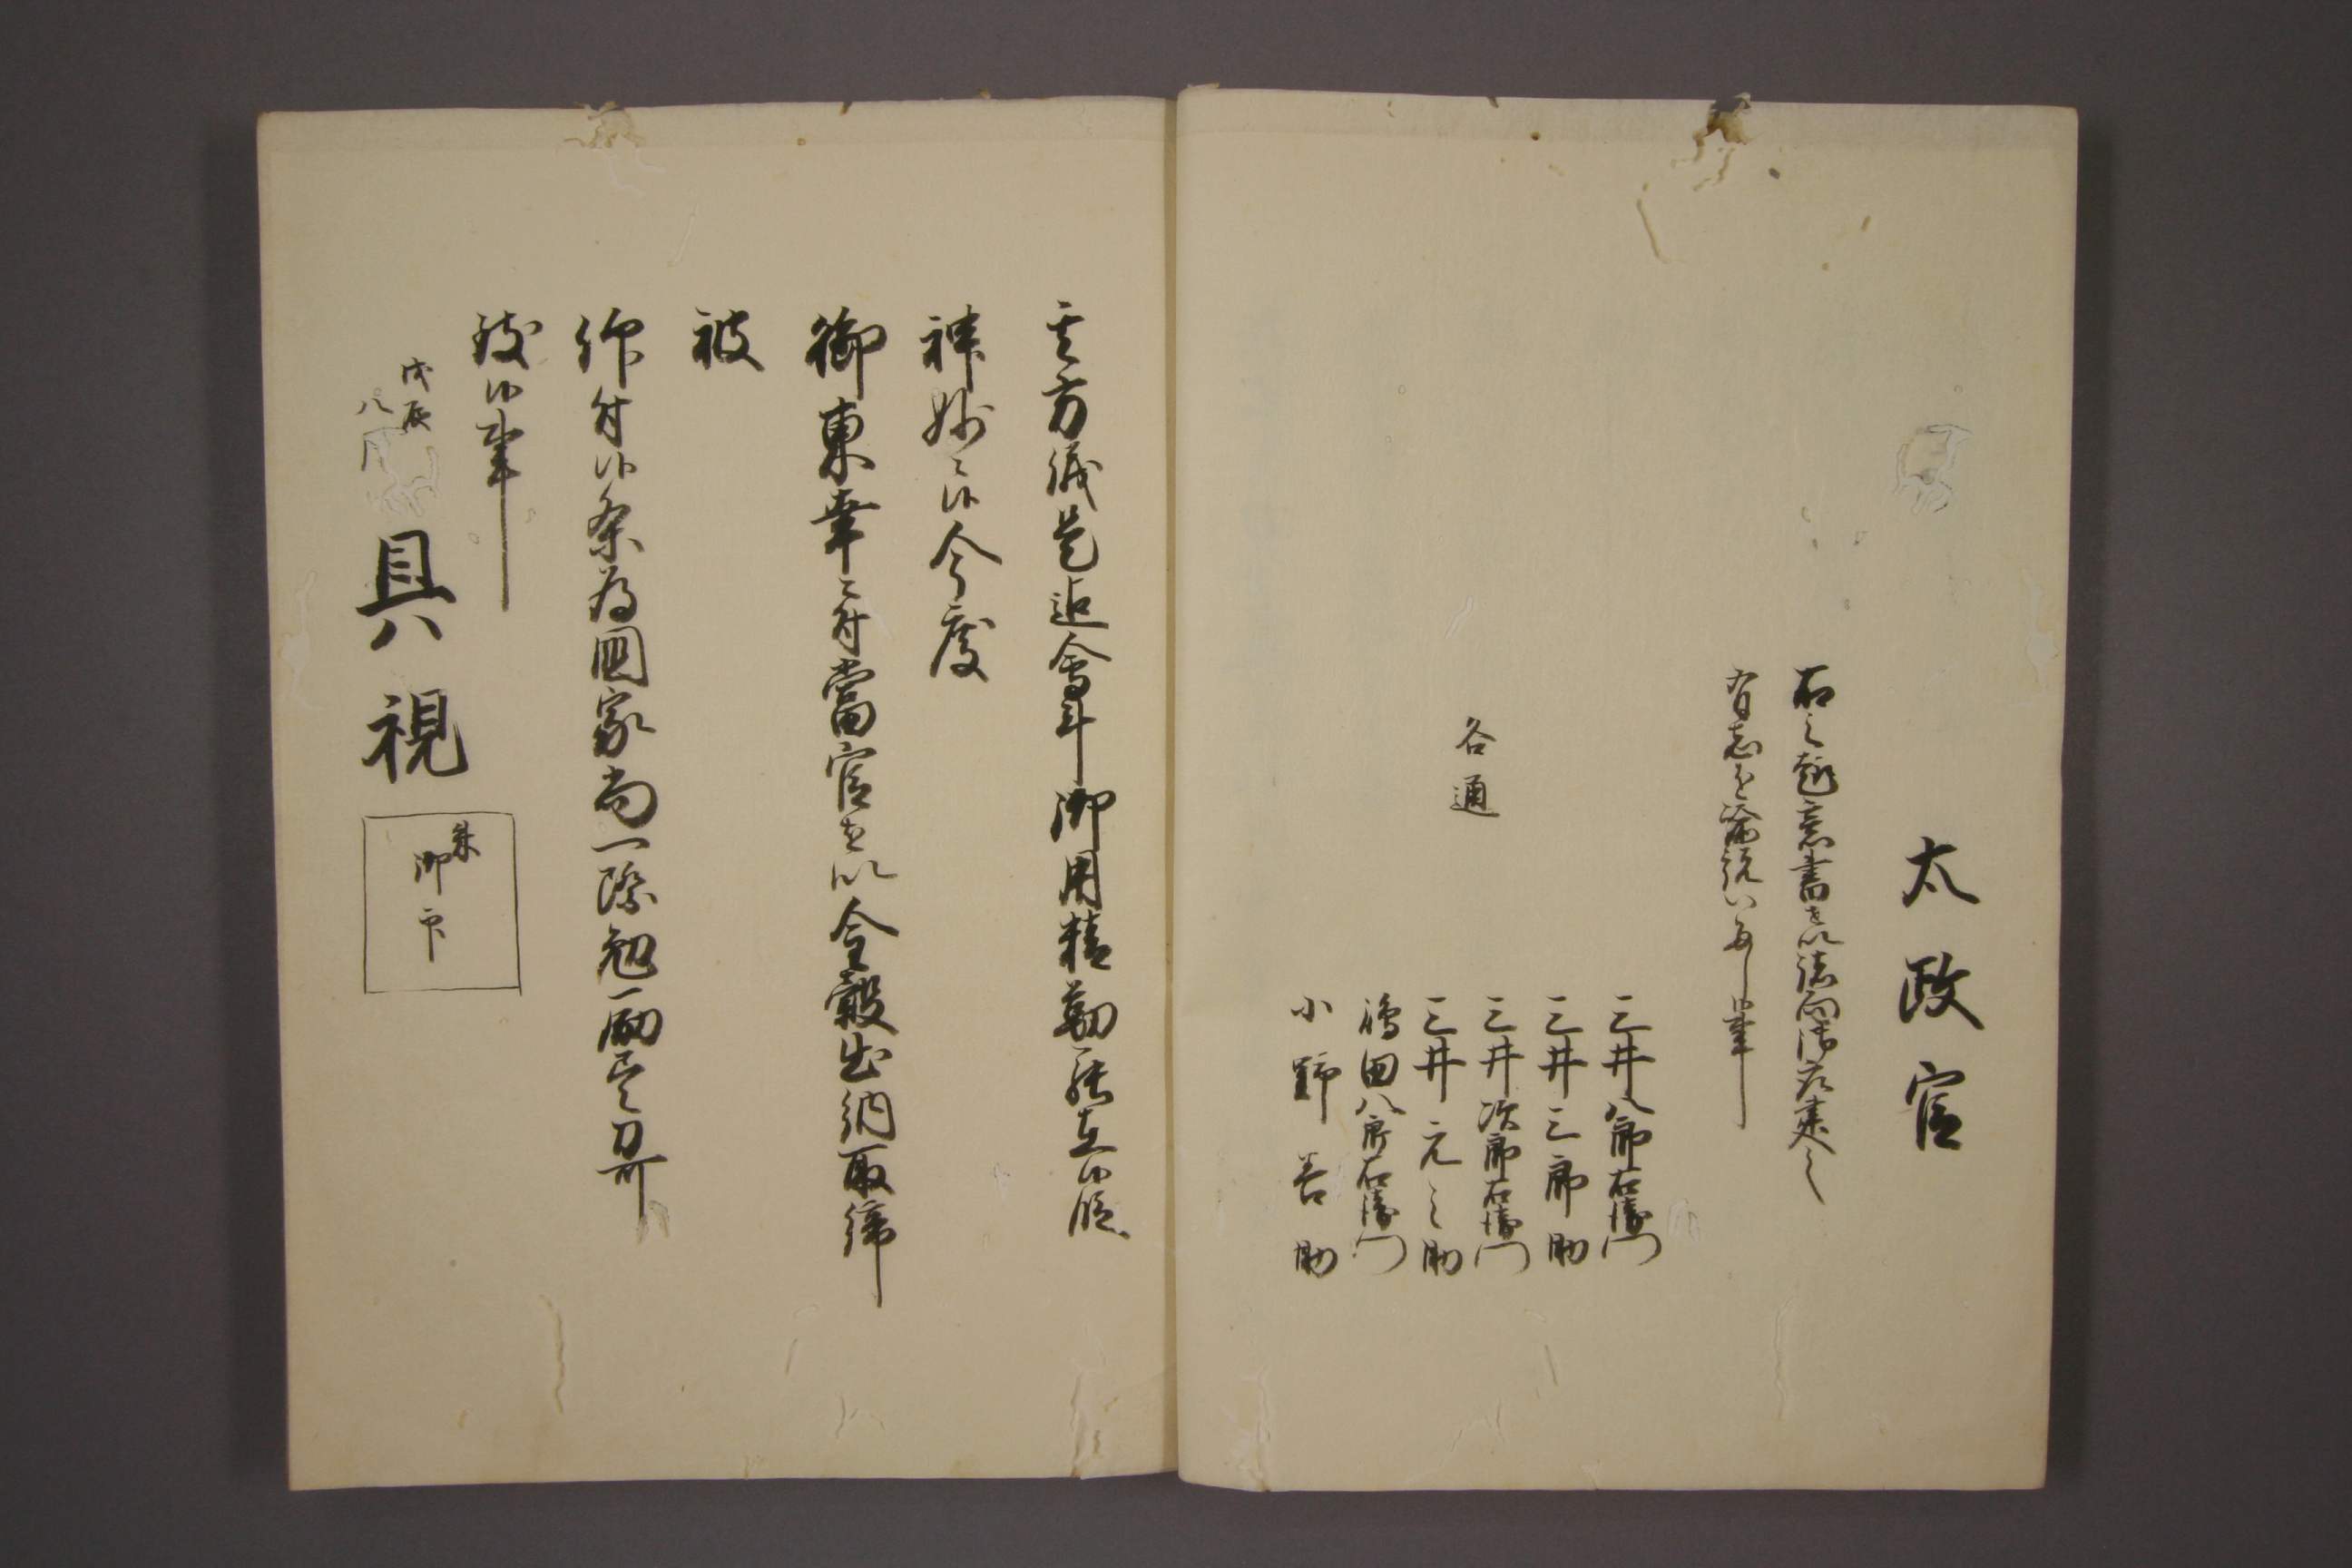 太政官
右之趣意書を以諸向御布建之
有志を論説いたし候事
各通
三井八郎右衛門
三井三郎助
三井次郎右衛門
三井元之助
嶋田八郎右衛門
小野善助
其方儀是迄會計御用精勤能在候段
神妙ニ候今度
御東幸ニ付當官を以金穀出納取締
被
仰付候条為國家尚一際勉励尽力可
致候事
戊辰
八月
具視
朱
御印